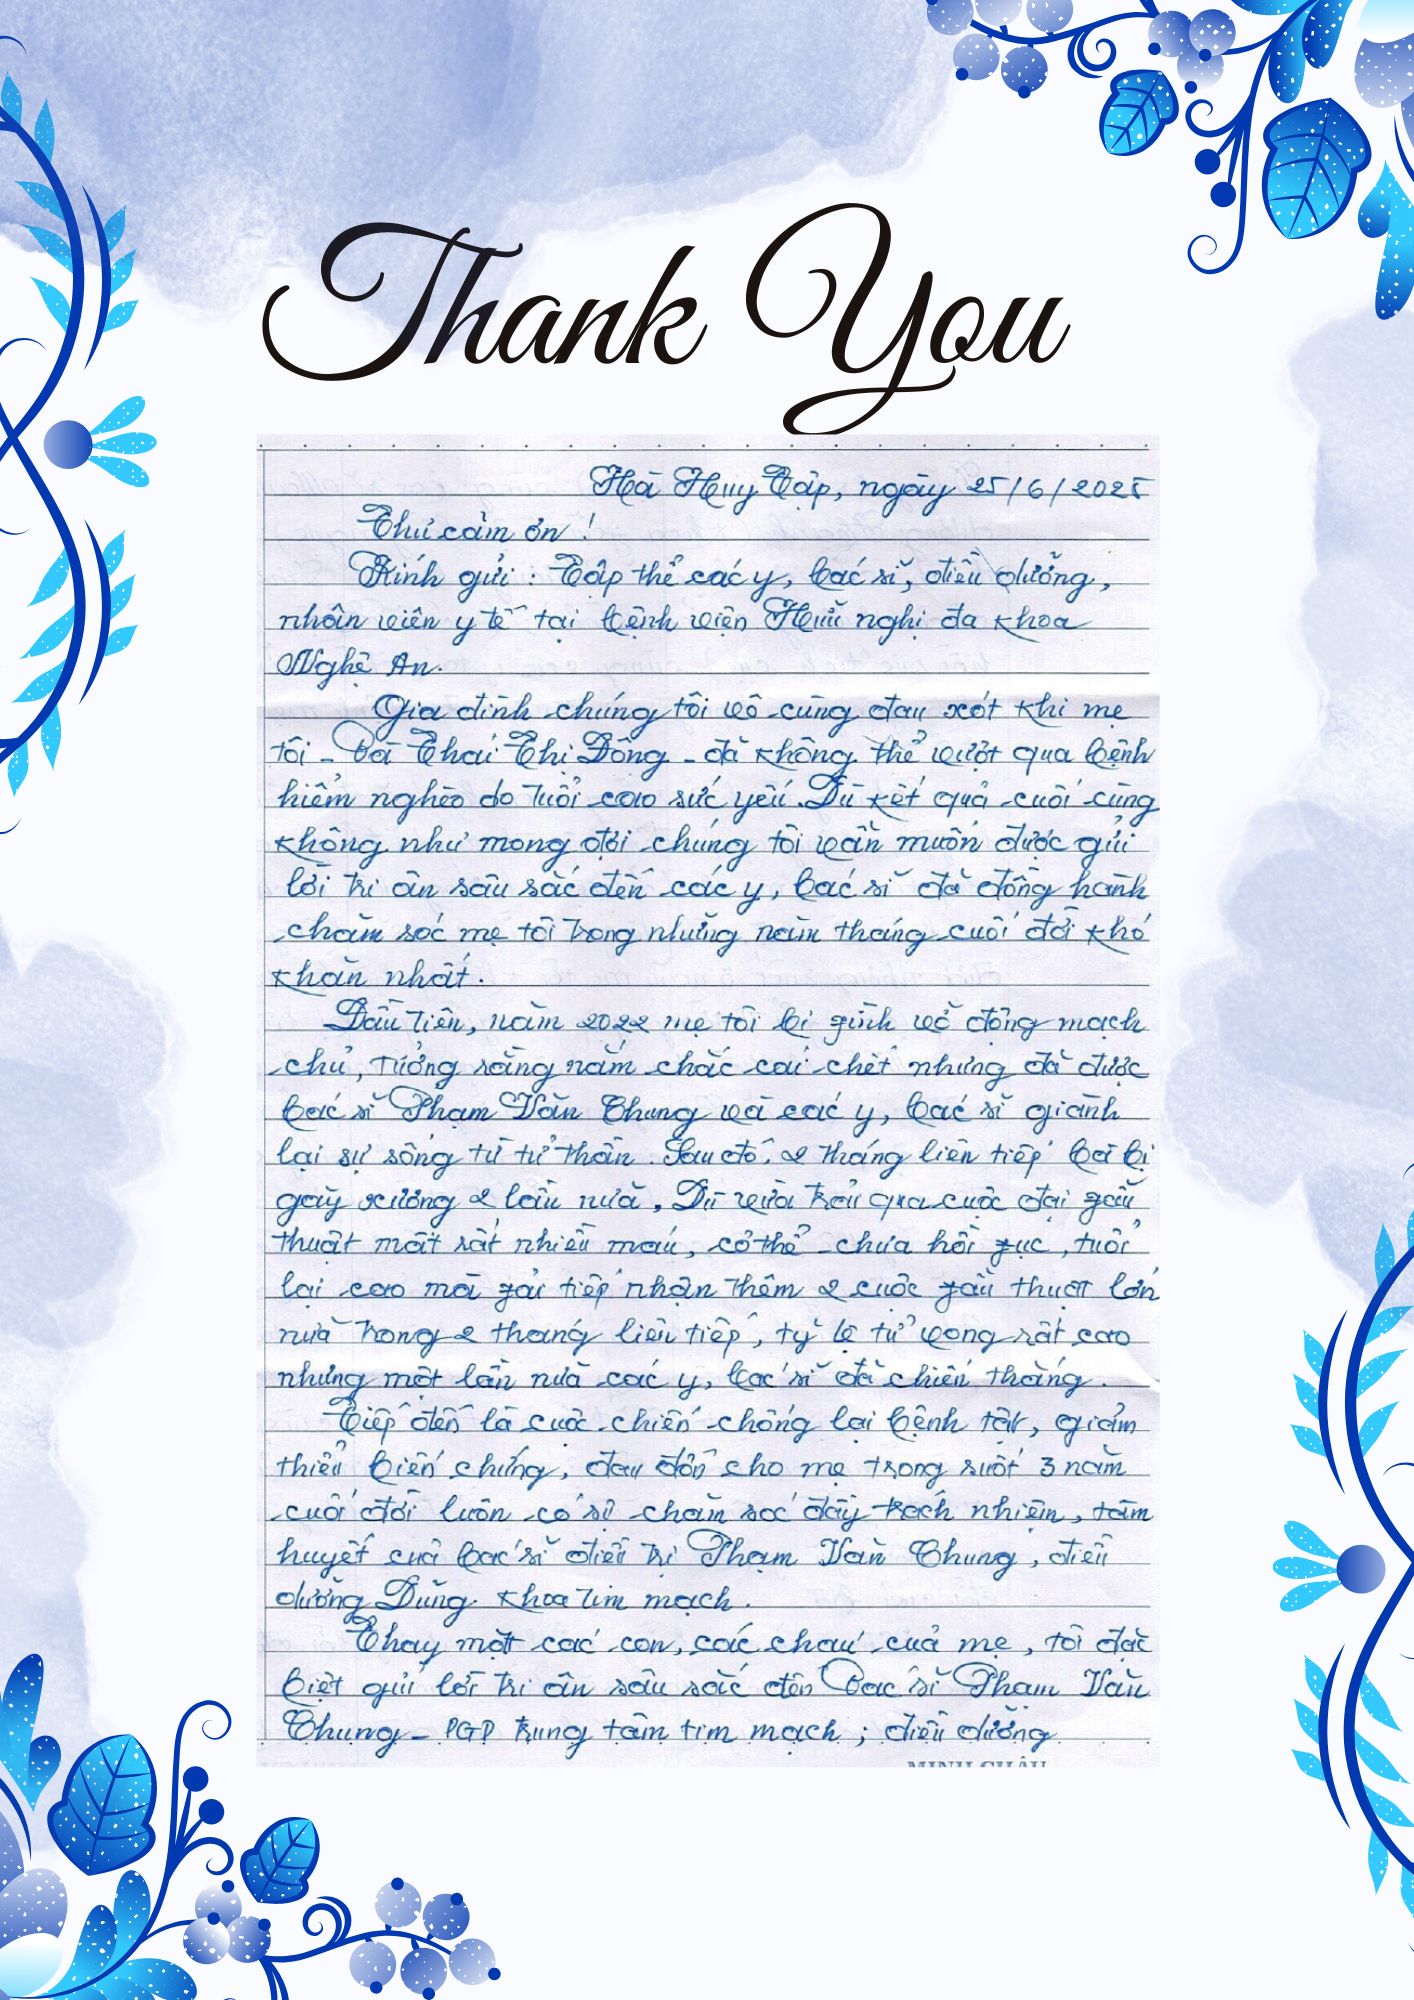 Thank You
Hà Huy Tập, ngày 25/6/2025
Thư cảm ơn !
Kính gửi : Tập thể các y, bác sĩ, điều dưỡng,
nhân viên y tế tại bệnh viện Hữu nghị đa khoa
Nghệ An.
Gia đình chúng tôi vô cùng đau xót khi mẹ
tôi - Bà Thái Thị Đông - đã không thể vượt qua bệnh
hiểm nghèo do tuổi cao sức yếu. Dù kết quả cuối cùng
không như mong đợi chúng tôi vẫn muốn được gửi
lời tri ân sâu sắc đến các y, bác sĩ đã đồng hành
chăm sóc mẹ tôi trong những năm tháng cuối đời khó
khăn nhất.
Đầu tiên, năm 2022 mẹ tôi bị fình vỡ động mạch
chủ, tưởng rằng nắm chắc cái chết nhưng đã được
bác sĩ Phạm Văn Chung và các y, bác sĩ giành
lại sự sống từ tử thần. Sau đó, 2 tháng liên tiếp bà bị
gãy xương 2 lần nữa, Dù vừa trải qua cuộc đại fẫu
thuật mất rất nhiều máu, cơ thể chưa hồi fục, tuổi
lại cao mà fải tiếp nhận thêm 2 cuộc fẫu thuật lớn
nữa trong 2 tháng liên tiếp, tỷ lệ tử vong rất cao
nhưng một lần nữa các y, bác sĩ đã chiến thắng.
Tiếp đến là cuộc chiến chống lại bệnh tật, giảm
thiểu biến chứng, đau đớn cho mẹ trong suốt 3 năm
cuối đời luôn có sự chăm sóc đầy trách nhiệm, tâm
huyết của bác sĩ điều trị Phạm Văn Chung, điều
dưỡng Dũng khoa tim mạch.
Thay mặt các con, các cháu của mẹ, tôi đặc
biệt gửi lời tri ân sâu sắc đến Bác sĩ Phạm Văn
Chung - PGĐ trung tâm tim mạch ; điều dưỡng
MINH CHÂU